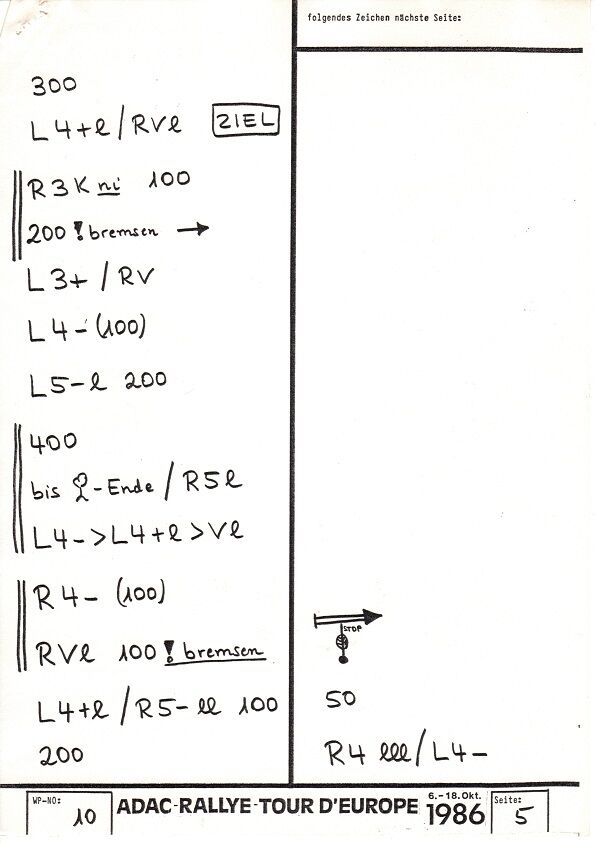 folgendes Zeichen nächste Seite:
300
L4+l/RVl ZIEL
R3K ni 100
200 ! bremsen →
L3+/RV
L4-(100)
L5-l 200
400
bis -Ende/R5l
L4->L4+l>Vl
R4- (100)
RVl 100 ! bremsen
L4+l/R5-ll 100
200
STOP
50
R4 lll/L4-
WP-NO: 10 ADAC-RALLYE-TOUR D'EUROPE 6.-18.Okt. 1986 Seite: 5